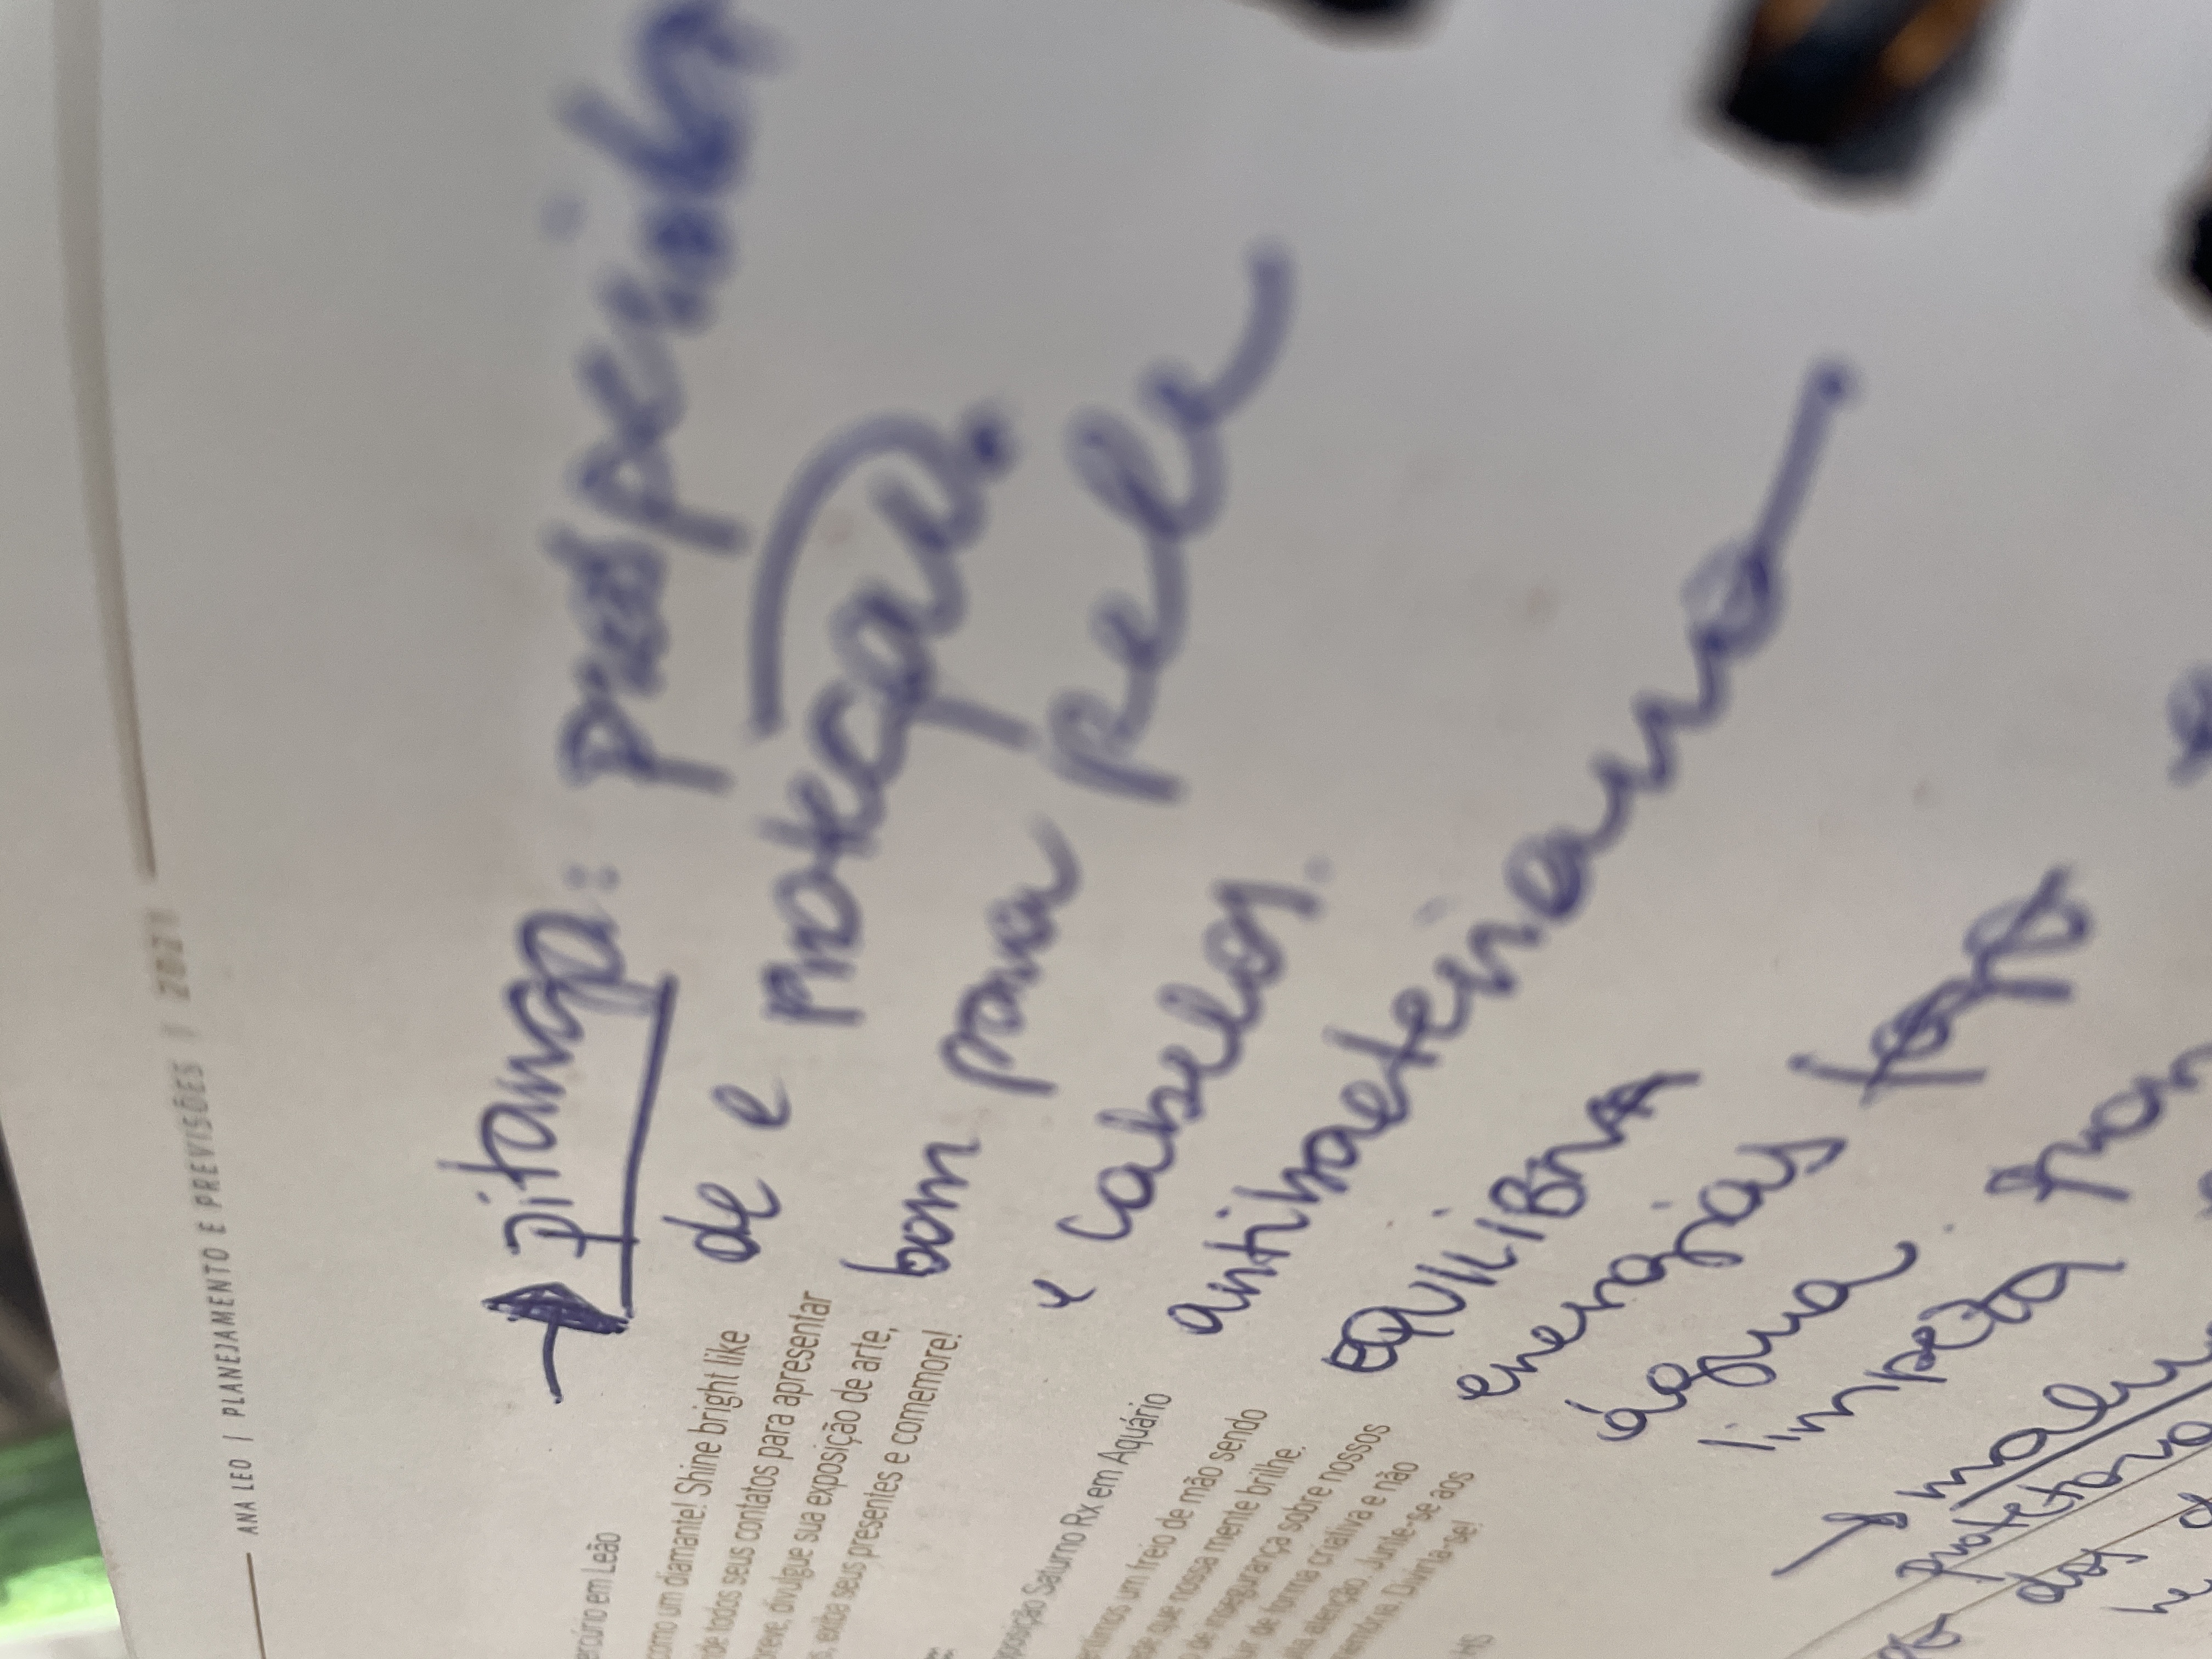 ANA LEO | PLANEJAMENTO E PREVISÕES | 2021
→ pitanga: prosperida
de e proteção.
bom para pele
e cabelos.
antibacteriano
EQUILIBRA
energias
água.
limpeza
→
protetora
dos
ercúrio em Leão
como um diamante! Shine bright like
de todos seus contatos para apresentar
breve, divulgue sua exposição de arte,
s, exiba seus presentes e comemore!
posição Saturno Rx em Aquário
entimos um freio de mão sendo
de que nossa mente brilhe.
de insegurança sobre nossos
uir de forma criativa e não
atenção. Junte-se aos
Divirta-se!